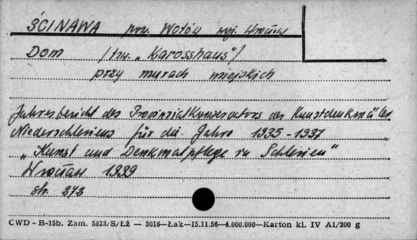 ŚCINAWA pow. Wołów woj. Wrocław
Dom /tzw. „Karosshaus"/
przy murach miejskich
Jahresbericht des Provinzialkonservators der Kunstdenkmäler
Niederschlesiens für die Jahre 1935-1937
„Kunst und Denkmalpflege in Schlesien"
Wrocław 1939
str. 373
CWD - B-15b. Zam. 5823/S/Łż — 3016—Łak—15.11.56—4.000.000—Karton kl. IV A1/200 g